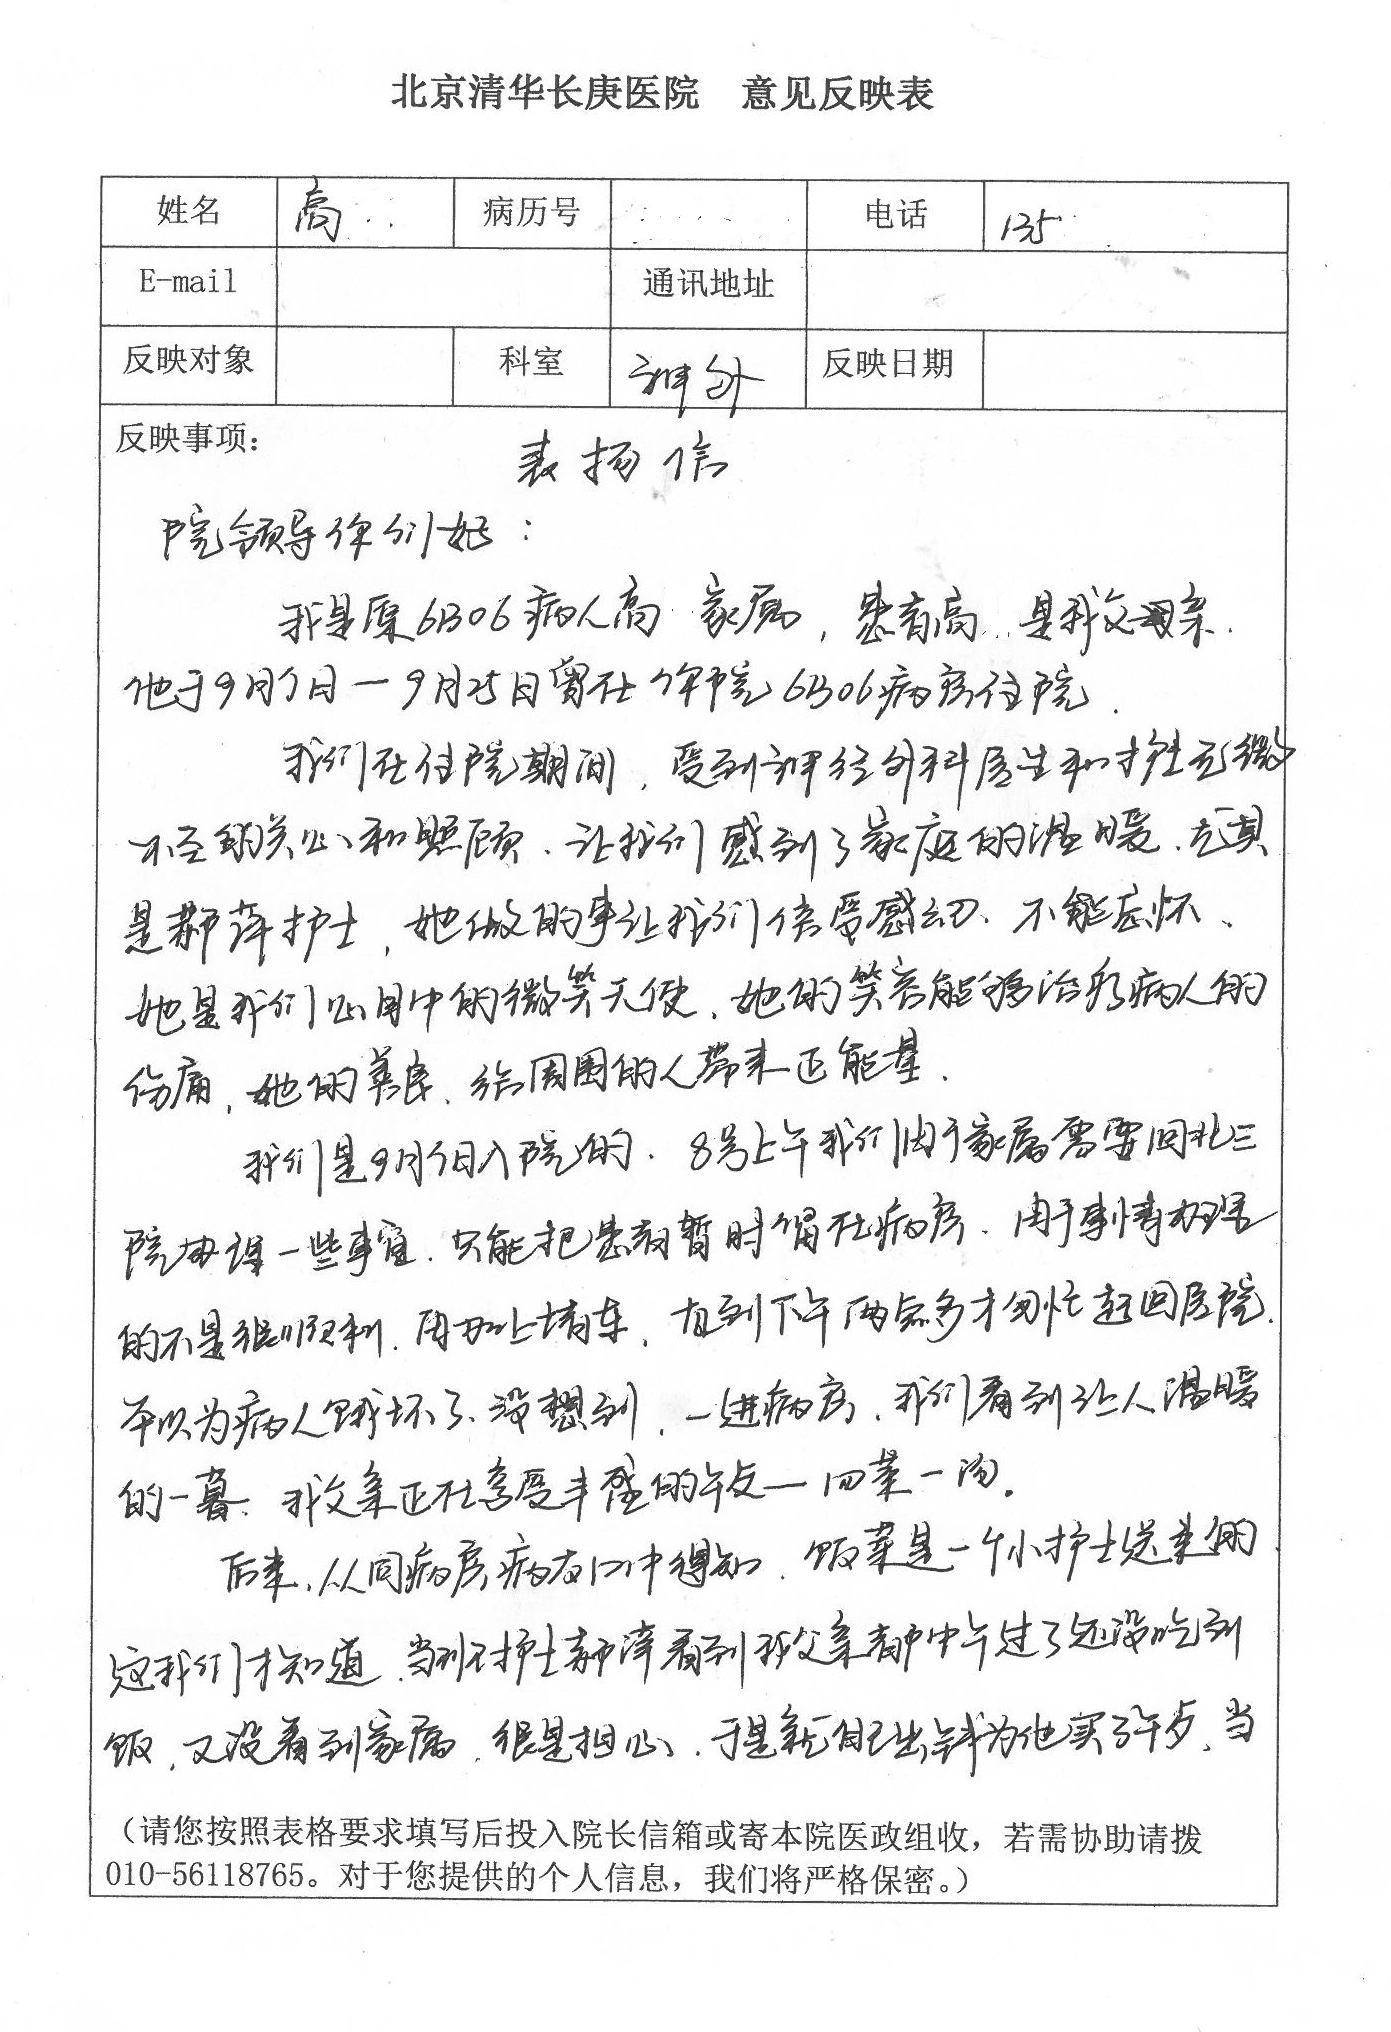 北京清华长庚医院 意见反映表
姓名 高 病历号 电话 135
E-mail 通讯地址
反映对象 科室 神外 反映日期
反映事项：
表扬信
院领导你们好：
我是原6B06病人高 家属，患者高 是我父亲.
他于9月 日—9月25日曾在你院6B06病房住院.
我们在住院期间，受到神经外科医生和护士无微
不至的关心和照顾.让我们感到了家庭的温暖.尤其
是郝萍护士，她做的事让我们倍受感动、不能忘怀、
她是我们心目中的微笑天使、她的笑容能够治疗病人的
伤痛，她的善良、给周围的人带来正能量.
我们是9月 日入院的.8号上午我们由于家属需要回北三
院办理一些事宜.只能把患者暂时留在病房.由于事情办理
的不是很顺利.再加上堵车，直到下午两点多才匆忙赶回医院.
本以为病人饿坏了.没想到，一进病房，我们看到让人温暖
的一幕.我父亲正在享受丰盛的午餐—四菜一汤。
后来，从同病房病友口中得知，饭菜是一个小护士送来的
这我们才知道.当班护士郝萍看到我父亲都中午过了还没吃到
饭，又没看到家属，很是担心、于是就自己出钱为他买了午餐，当
（请您按照表格要求填写后投入院长信箱或寄本院医政组收，若需协助请拨
010-56118765。对于您提供的个人信息，我们将严格保密。）